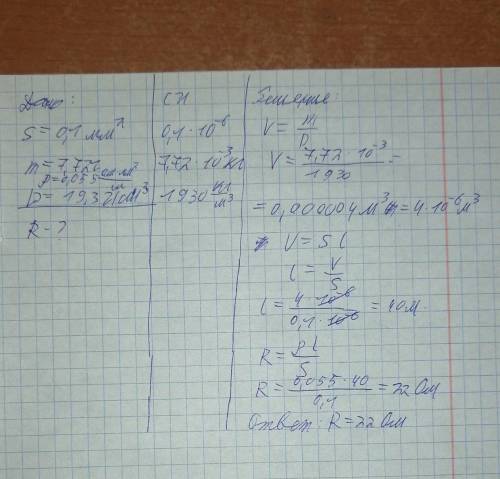 Дано:
S = 0,1 мм²
m = 7,72г
ρ = 0,055
D = 19,3 г/см³
R - ?
СИ
0,1 · 10⁻⁶
7,72 · 10⁻³ кг
1930 кг/м³
Решение:
V = m/D
V = 7,72 · 10⁻³/1930 =
= 0,000004 м³ = 4 · 10⁻⁶ м³
V = S l
l = V/S
l = 4 · 10⁻⁶/0,1 · 10⁻⁶ = 40м
R = ρl/S
R = 0,055 · 40/0,1 = 22 Ом
Ответ: R = 22 Ом